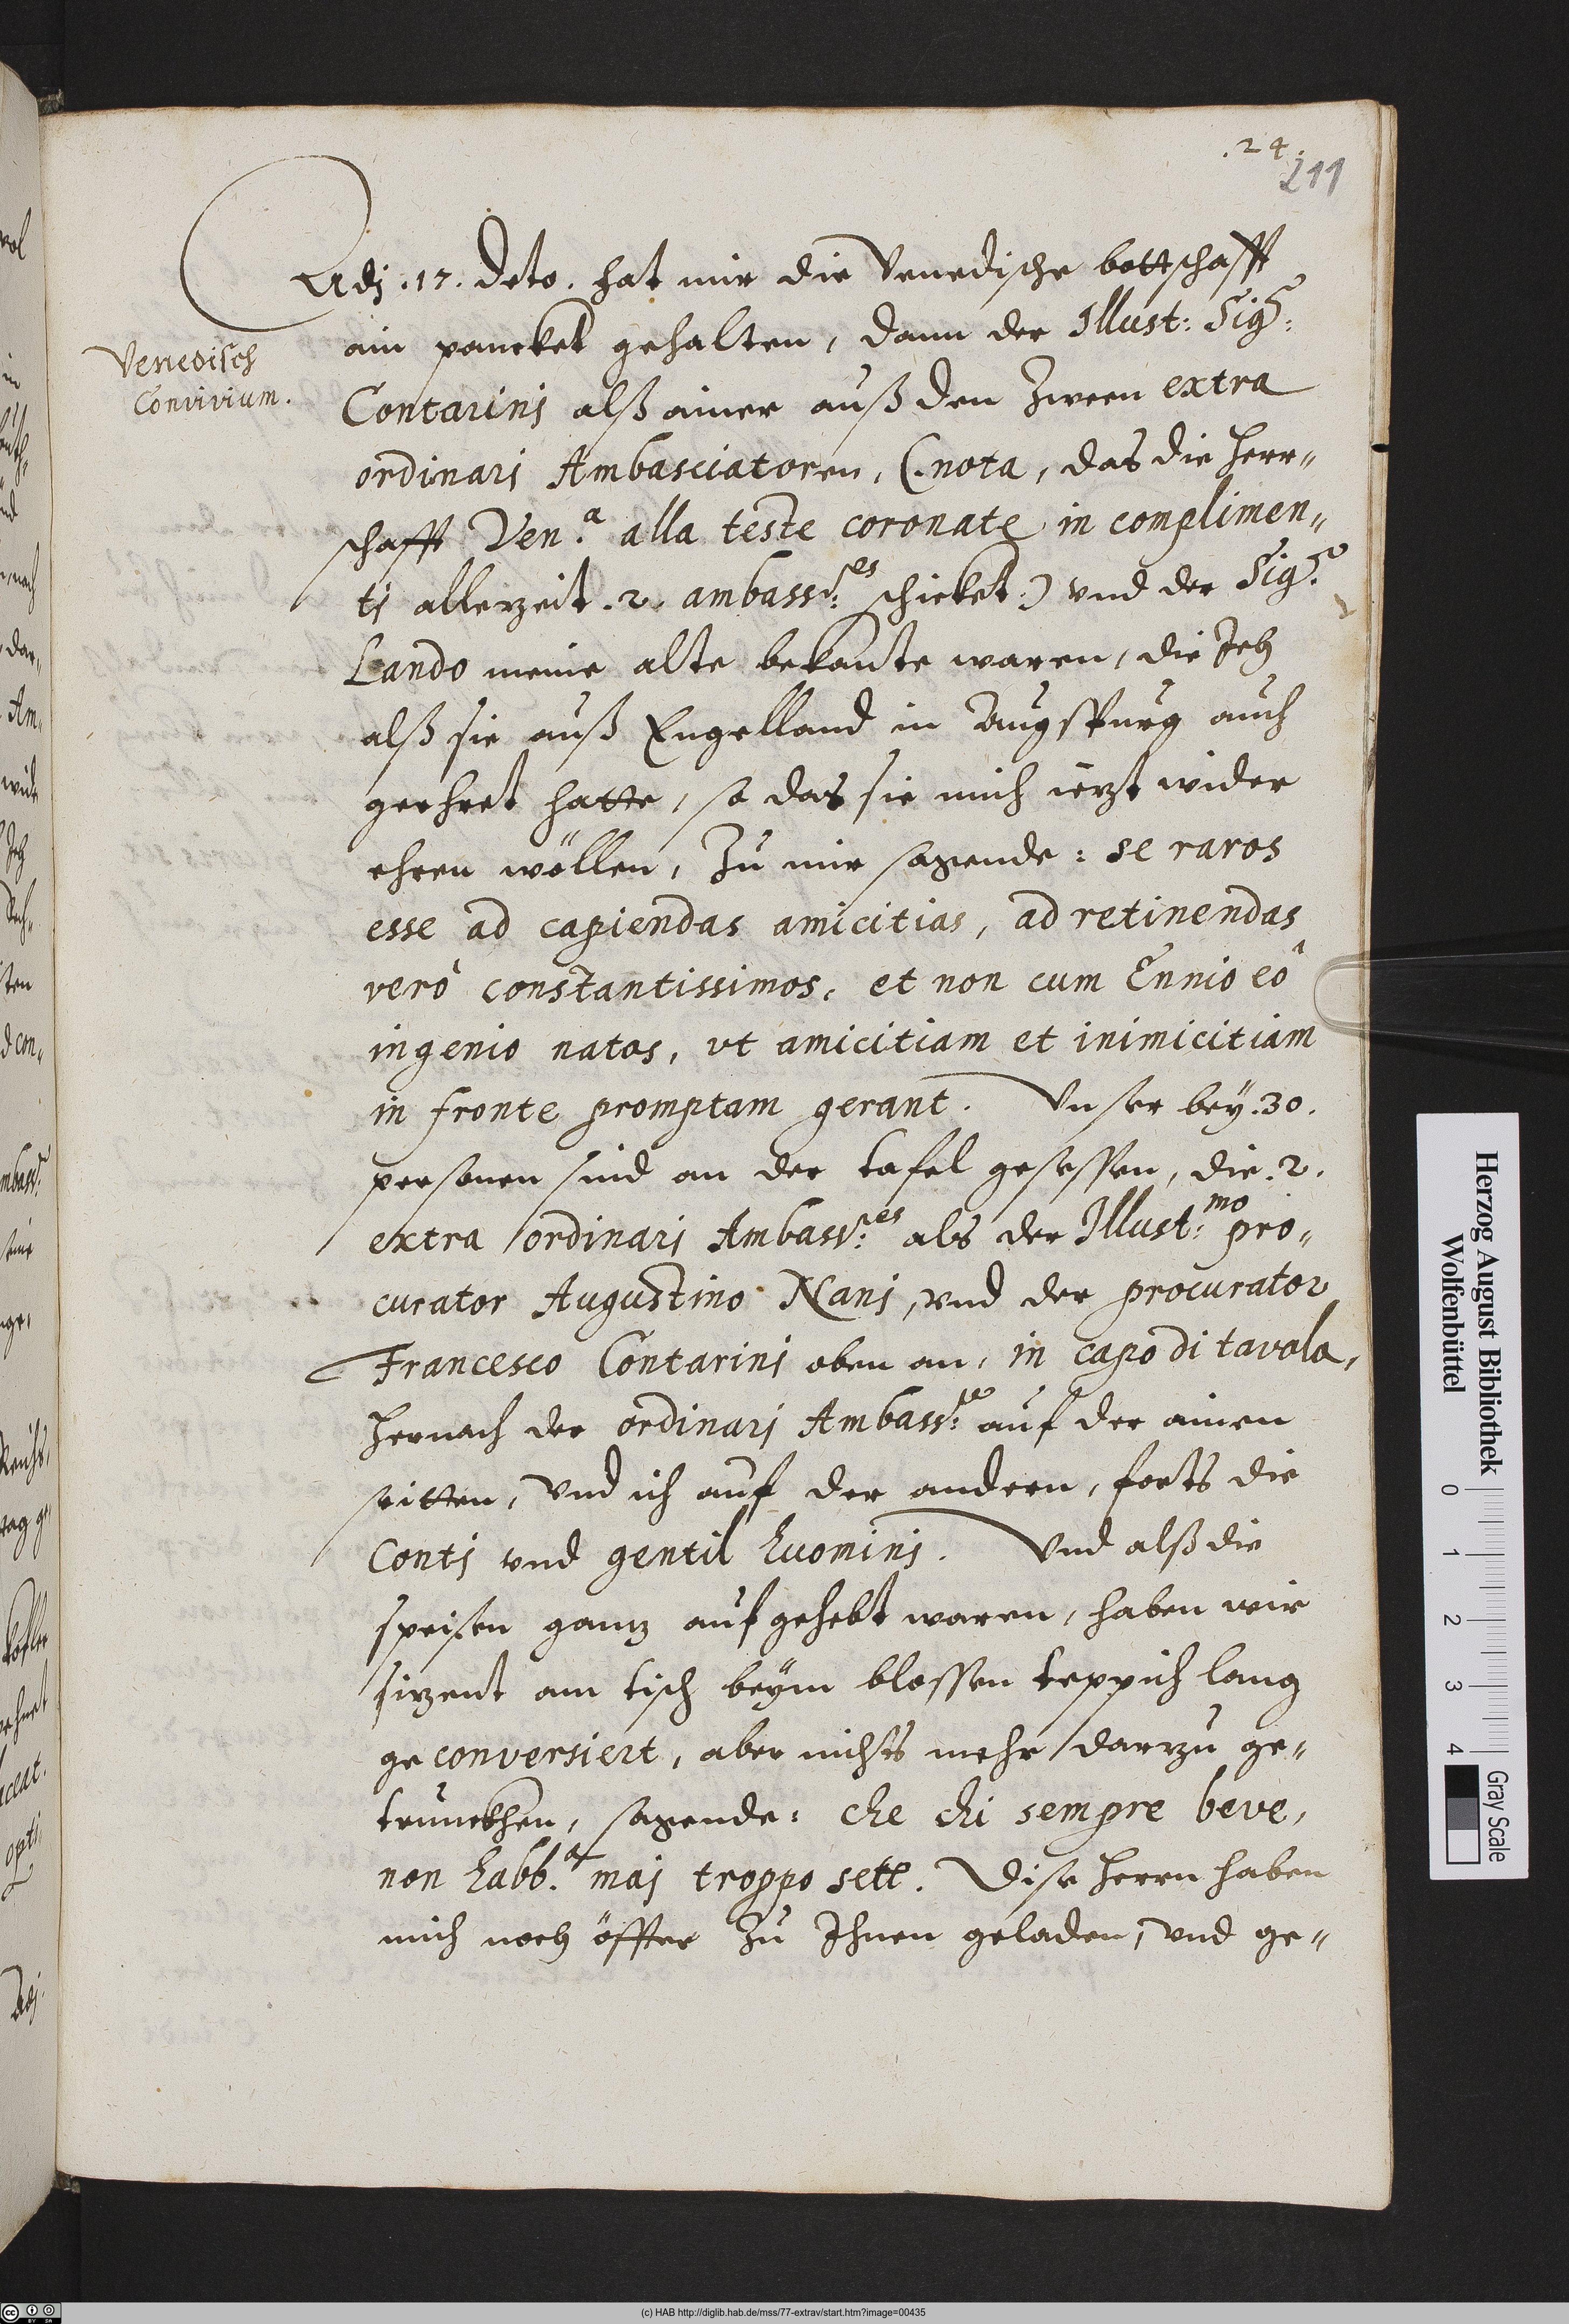 .24.
211
Adj .17. deto. hat mir die Venedische bottschafft
ain pancket gehalten, dann der Illust: Sig:
Venedisch
Convivium.
Contarinj alß ainer auß den Zween extra
ordinarj Ambasciatoren, (:nota, das die Herr„
schafft Ven.a alla teste coronate in complimen„
tj allerzeit .2. ambass:res schicket:) vnd der Sig.r
Lando meine alte bekante waren, die Ich
alß sie auß Engelland in Augspurg auch
geehret hatte, so das sie mich iezt wider
ehren wöllen, Zu mir sagende: se raros
esse ad capiendas amicitias, ad retinendas
verò constantissimos, et non cum Ennio eô
ingenio natos, vt amicitiam et inimicitiam
in fronte promptam gerant. Vnser bey .30.
personen sind an der tafel gesessen, die .2.
extra ordinarj Ambass:res als der Illust:mo pro„
curator Augustino Nanj, vnd der procurator
Francesco Contarinj oben an, in capo di tavola,
hernach der ordinarj Ambass:re auf der ainen
seitten, vnd ich auf der andern, forts die
Contj vnd gentil huominj. Vnd alß die
speisen ganz aufgehebt waren, haben wir
sizent am tisch beym blossen teppich lang
geconversiert, aber nichts mehr darzu ge„
trunckhen, sagende: che chi sempre beve,
non habb.a maj troppo sete. Dise herrn haben
mich noch öffter Zu Ihnen geladen, vnd ge„
Herzog August Bibliothek
Wolfenbüttel
0 1 2 3 4
Gray Scale
(c) HAB http://diglib.hab.de/mss/77-extrav/start.htm?image=00435